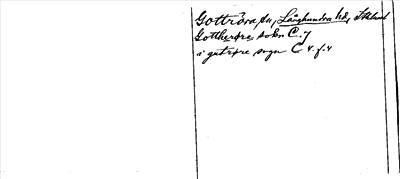 Gottröra sn, Långhundra hd, Sthlm l
Gottherøre sokn C. 7
i gutrøre sogn C 4 f. 4